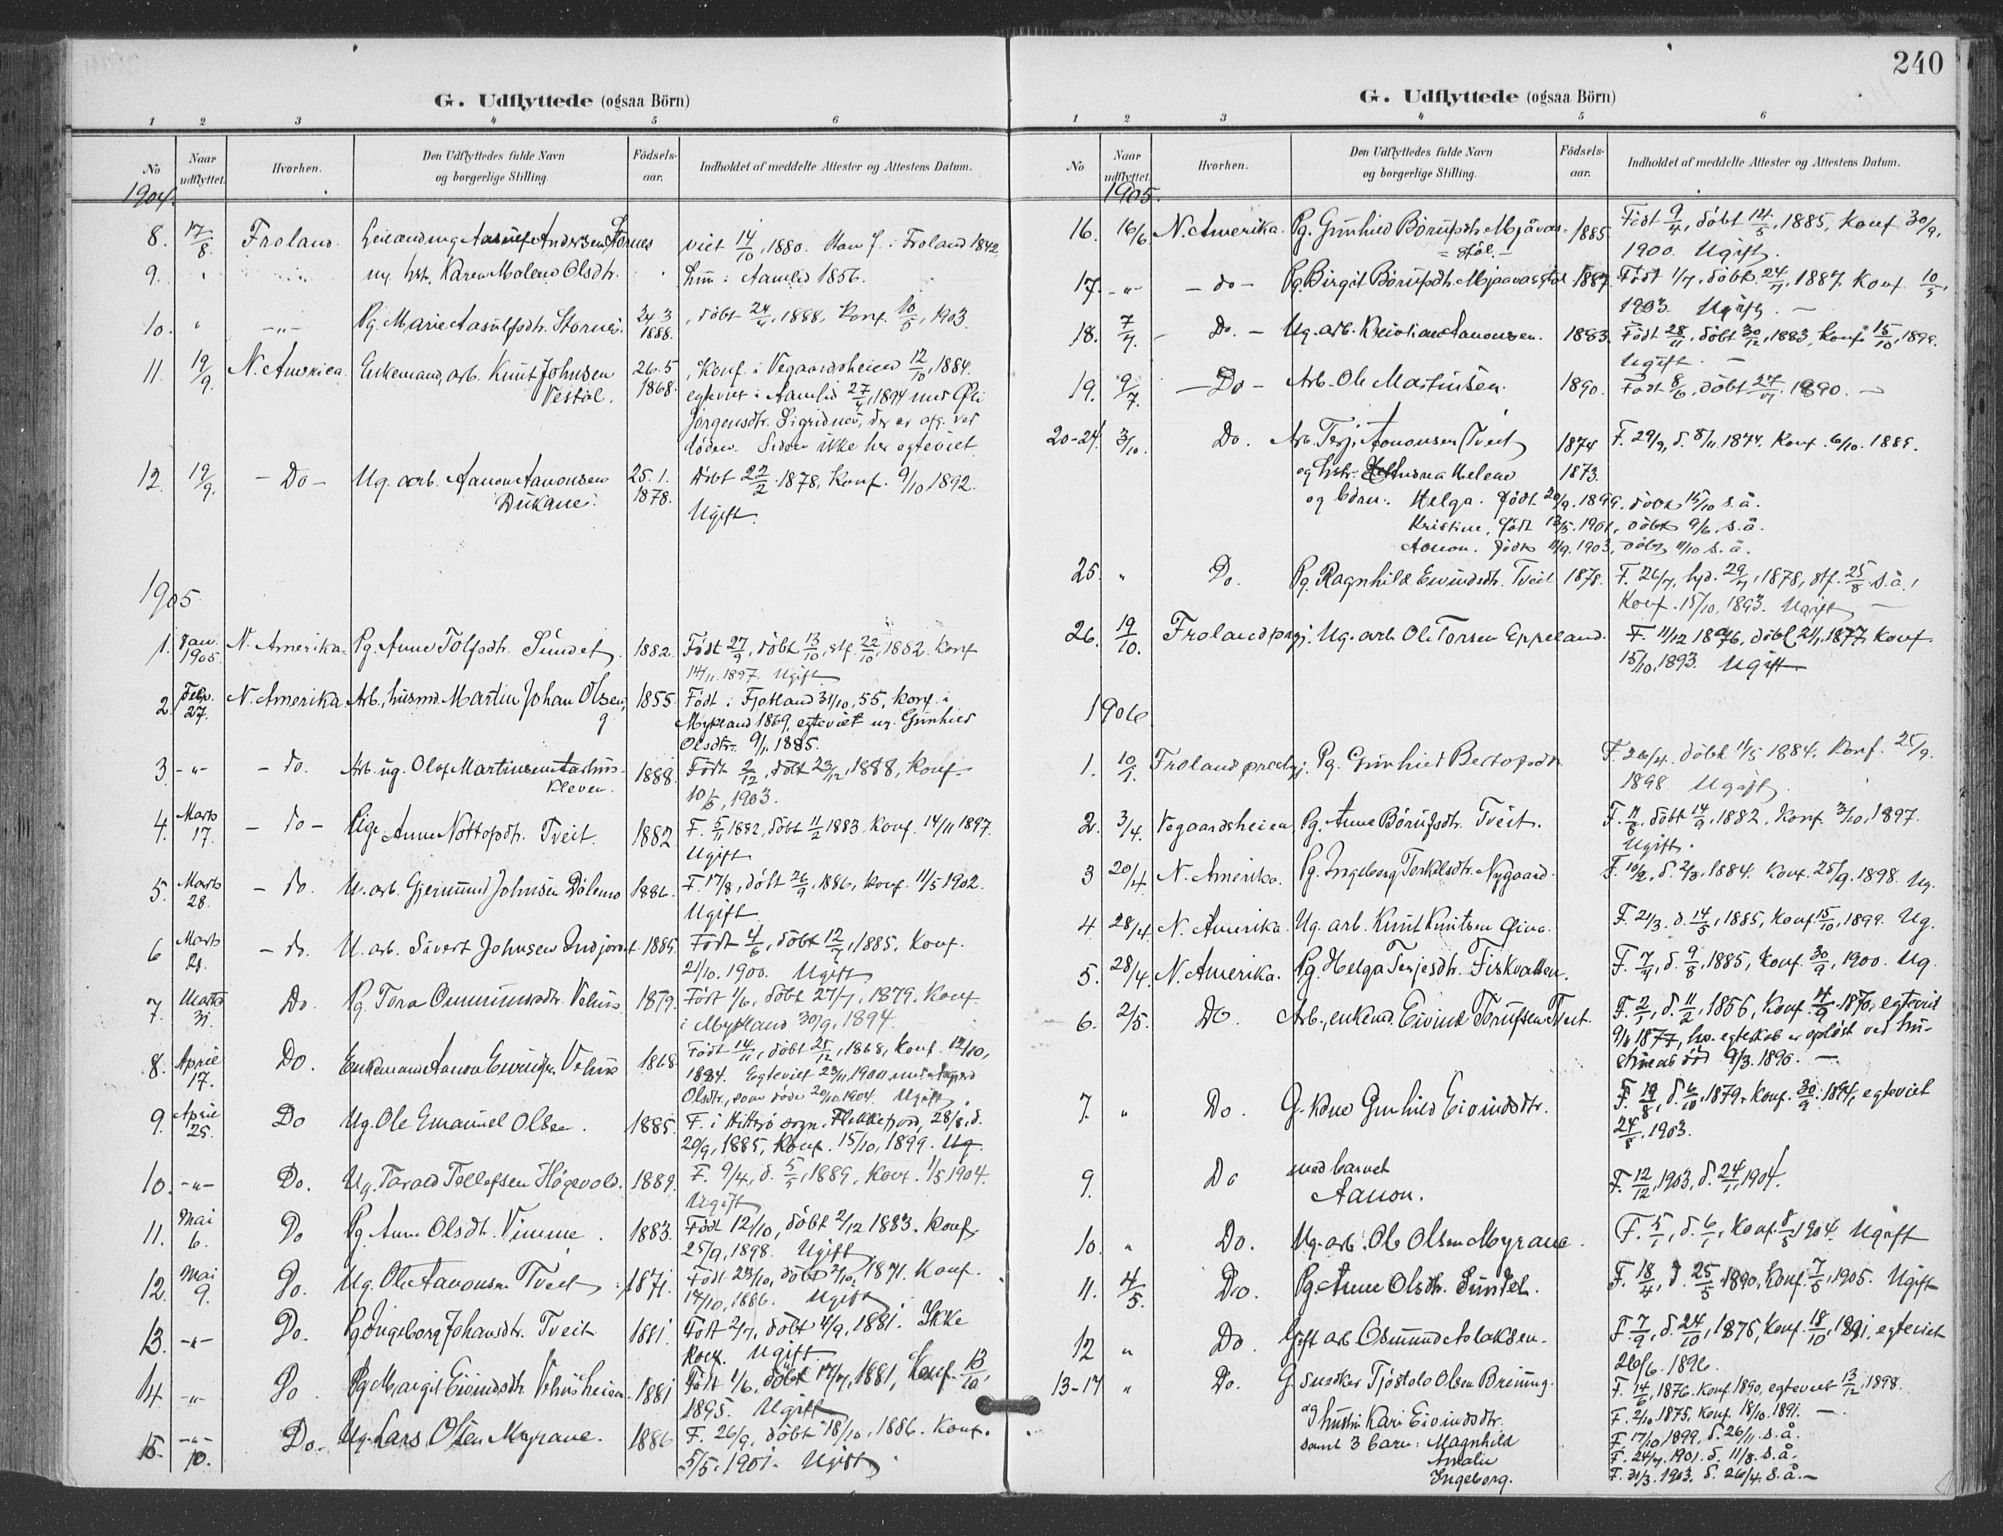 G. Udflyttede (ogsaa Börn)
1 2 3 4 5 6
No Naar udflyttet. Hvorhen. Den Udflyttedes fulde Navn og borgerlige Stilling. Födsels-aar. Indholdet af meddelte Attester og Attestens Datum.
1904.
8. 17/8 Froland. Andersen Stornes viet 14/10, 1880. Han f. i Froland 1842
9. " hst. Karen Malene Olsdtr. " Hun i Aamlid 1856.
10. " -"- Pg. Marie Aasulfsdtr. Stornes 24.3 1888. , döbt 24/4, 1888, Konf. 10/5, 1903.
11. 19/9. N. America Enkemand, arb. Knut Johnsen 26.5 , Konf. i Vegaardsheien 12/10, 1884.
Vestöl. 1868. egteviet i Aamlid 27/4, 1894 med
Jörgensdtr. Sigridnes, der er afg. ved
döden. Siden ikke her egteviet.
12. 19/9. - Do - Ug. arb. Aanon Aanonsen 25.1. Döbt 22/2 1878, Konf. 9/10 1892.
1878. Ugift.
1905
1. Jan. 1905 N. Amerika. Pg. Anne Tolfsdtr. Sundet. 1882. Födt 27/9, döbt 13/10, stf. 22/10, 1882. Konf
14/11. 1897. Ugift
2. Feb. 27. N. Amerika Arb., husmd. Martin Johan Olsen, 1855. Födt i Fjotland 31/10, 55, Konf. i
Mykland 1869, egteviet m. Gunhild
Olsdtr. 9/1. 1885.
3. -"- - do. Arb. ug. Olaf Martinsen 1888. Födt 2/12, döbt 23/12, 1888, Konf
kleven. 10/5, 1903.
4. Marts 17. - do - Pige Anne Nottopsdtr. Tveit. 1882 F. 5/ 1882, döbt 11/2 1883. Konf. 14/11 1897.
Ugift
5. Marts 28. - do. U. arb. Gjermund Johnsen Dölemo 1886. F. 17/8, döbt 26/9, 1886, Konf. 11/5 1902.
Ugift
6 Marts - do. U. arb. Sivert Johnsen 1885. Födt 4/6, döbt 12/7, 1885. Konf.
21/10. 1900. Ugift
7. Marts 31. Do. Pg. Tora Vehus 1879. Födt 1/6, döbt 27/7, 1879. Konf.
i Mykland 30/9, 1894.
8. April 17. Do. Enkemand Aanon Vehus 1868 Födt 14/11, döbt 25/12, 1868, Konf. 12/10,
1884. Egteviet 23/11 1900 med
Olsdtr., som döde 20/10 1904. Ugift.
9. April 25. Do Ug. Ole Emanuel Olsen. 1885. F. i Hitterö sogn. Flekkefjord, 28/8, d.
20/9, 1885, Konf. 15/10, 1899. Ug.
10. -"- Do. Ug. Tarald Tellefsen Högevold. 1889. F. 9/4, d. 5/5, 1889, Konf. 1/5 1904.
Ugift
11. Mai 6. Do Pg. Anne Olsdtr. Vimme. 1883. Födt 12/10, döbt 2/12 1883. Konf.
25/9, 1898. Ugift
12. Mai 9. Do. Ug. Ole Aanonsen Tveit 1871. Födt 23/10, döbt 1871. Konf.
14/10, 1886. Ugift
13. -"- Do. Pg. Ingeborg Johansdtr. Tveit 1881. Födt 2/7, döbt 4/9, 1881. Ikke
Konf. Ugift
14 -"- Do. Pg. Margit Eivindsdtr. Vehusheien. 1881 Födt 1/6, döbt 17/7, 1881, Konf. 13/10,
1895. Ugift
15. -"- 10. Do. Ug. Lars Olsen Myrane. 1886 F. 26/9, döbt 18/10, 1886. Konf.
5/5. 1901. Ugift
240
G. Udflyttede (ogsaa Börn)
1 2 3 4 5 6
No Naar udflyttet. Hvorhen. Den Udflyttedes fulde Navn og borgerlige Stilling. Födsels-aar. Indholdet af meddelte Attester og Attestens Datum.
1905.
16. 16/6 N. Amerika. Pg. Gunhild Börufsdtr. Mjåvas- 1885 Födt 9/4, döbt 14/5, 1885, Konf 30/9,
=stöl. 1900. Ugift.
17. -"- - do - Pg. Birgit Börufsdtr. Mjaavasstöl 1887. Födt 1/7, döbt 24/7, 1887. Konf. 10/5,
1903. Ugift. -
18. 7/7. - Do. - Ug. arb. Kristian Aanonsen. 1883. Födt 28/11, döbt 30/12, 1883, Konf. 15/10, 1899.
Ugift. -
19. 9/7. - Do - Arb. Ole Martinsen. 1890. Födt 8/6, döbt 27/7, 1890. -
20-24. 3/10. Do. Arb. Terj. Aanonsen Tveit 1874 F. 29/9, d. 8/11. 1874. Konf. 6/10. 1889.
og hstr. Andrea Helene 1873.
og börn. Helga. födt 20/9. 1899, döbt 15/10 s.å.
Kristine, födt 13/5. 1901, döbt 9/6. s.å.
Aanon. födt 11/9. 1903, döbt 11/10 s.å.
25. " Do. Pg. Ragnhild Eivindsdtr. Tveit 1878. F. 26/7, hjd. 29/7, 1878, stf. 25/8 s.å,
Konf. 15/10, 1893. Ugift -
26. 19/10. Frolands prgj. Ug. arb. Ole Torsen Eppeland. F. 11/12 1876, döbt 21/1, 1877, Konf
15/10, 1893. Ugift
1906
1. 10/1. Frolands prestgj. Pg. Gunhild F. 26/4. döbt 11/5 1884. Konf. 25/9.
1898. Ugift.
2. 3/4. Vegaardsheien Pg. Anne Börufsdtr. Tveit. F. döbt 14/9, 1882. Konf. 3/10, 1897.
Ugift.
3 20/4 N. Amerika. Pg. Ingeborg Torkelsdtr. Nygaard. F. 10/2, d. 2/3, 1884. Konf. 25/9. 1898. Ug.
4. 28/4. N. Amerika. Ug. arb. Knut Knutsen F. 21/3. d. 14/5, 1885, Konf 15/10, 1899. Ug.
5. 28/4 N. Amerika. Pg. Helga Terjesdtr. Fiskvatten. F. 7/7, d. 9/8, 1885, Konf. 30/9, 1900. Ug.
6. 2/5. Do. Arb., enkemd. Eivind Torufsen Tveit. F. 2/1, d. 11/2, 1856, Konf. 4/9 1870, egteviet
1877, hv. egteskab er oplöst ved hu-
struens död 9/3. 1896. -
7. " Do. G. Kone Gunhild Eivindsdtr. F. 19/8, d. 6/10, 1879. Konf. 30/9. 1894, egteviet
24/8, 1903.
9. Do med barnet F. 12/12, 1903, d. 24/1, 1904.
Aanon.
10. " Do. Ug. arb. Ole Olsen Myrane. F. 5/1, d. 6/1, Konf. 8/5 1904. Ugift
11. 4/5. Do. Pg. Anne Olsdtr. Sundet. F. 18/4, d. 25/5 1890, Konf. 7/5, 1905. Ugift
12 " Do Gift arb Osmund Aslaksen. F. 7/9, d. 24/10, 1875, Konf. 18/10, 1891, egteviet
26/6. 1896.
13-17 " Do. G. Snedker Tjöstolv Olsen F. 14/6, 1876. Konf. 1890, egteviet 13/12, 1898.
og hustru Kari Eivindsdtr. F. 2/10 1875, Konf. 18/10. 1891. -
samt 3 barn: Magnhild F. 17/10 1899, d. 26/11. s.å.
Amalie F. 24/7. 1901. d. 11/8. s.å.
Ingeborg. F. 31/3. 1903. d. 26/4. s.å. -